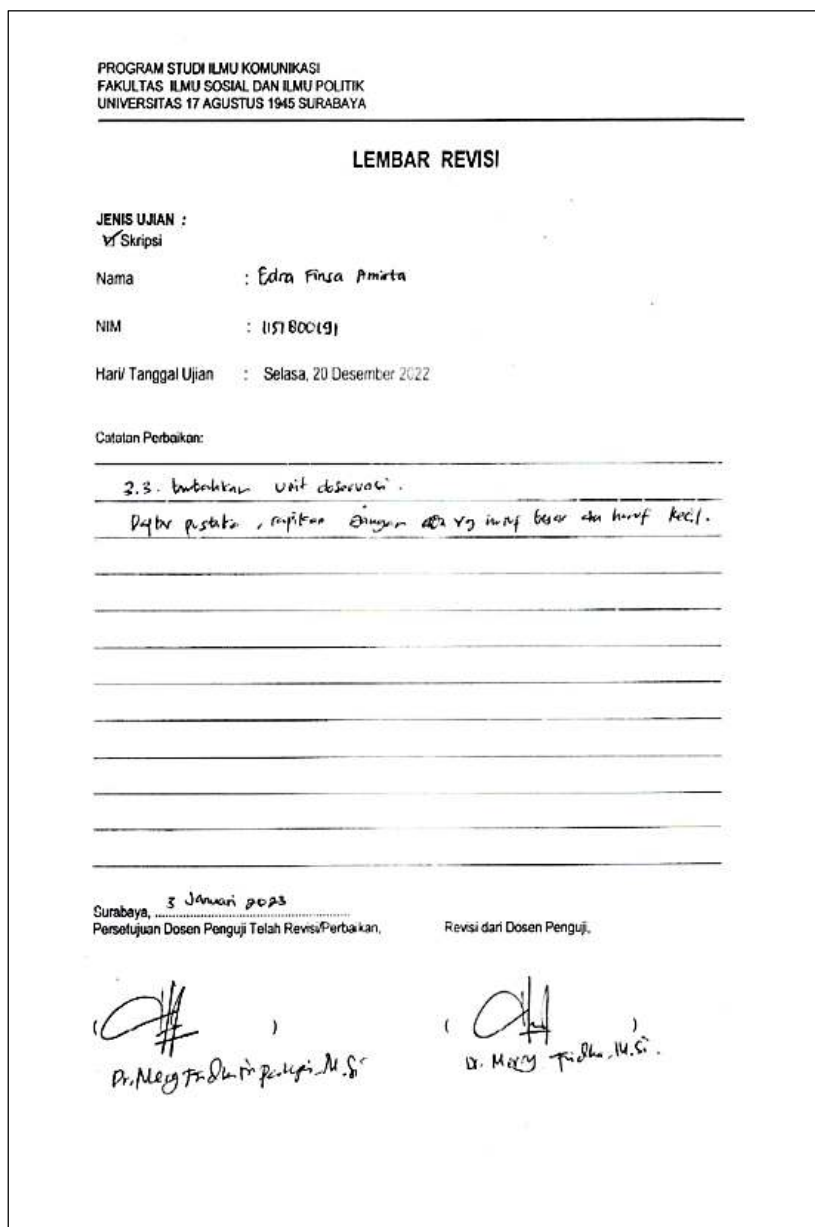 PROGRAM STUDI ILMU KOMUNIKASI
FAKULTAS ILMU SOSIAL DAN ILMU POLITIK
UNIVERSITAS 17 AGUSTUS 1945 SURABAYA
LEMBAR REVISI
JENIS UJIAN :
Skripsi
Nama : Edra Finsa Amirta
NIM : 1151800191
Hari/ Tanggal Ujian : Selasa, 20 Desember 2022
Catatan Perbaikan:
3.3. tambahkan unit observasi.
Daftar pustaka, rapikan jangan ada yg huruf besar dan huruf kecil.
Surabaya, 3 Januari 2023
Persetujuan Dosen Penguji Telah Revisi/Perbaikan, Revisi dari Dosen Penguji,
( ) ( )
Dr. Merry Fridha M.Si Dr. Merry Fridha, M.Si.